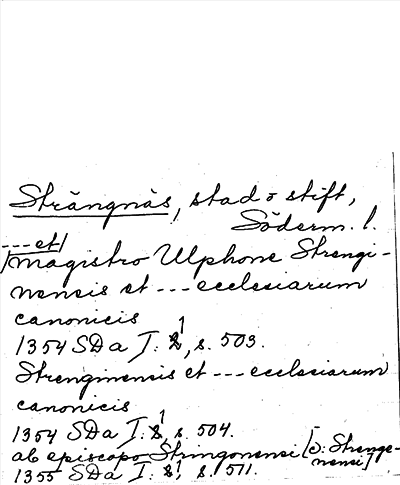 Strängnäs, stad o stift,
Söderm. l.
--- et
magistro Ulphone Strengi-
nensis et --- ecclesiarum
canonicis
1354 SDa I: 1, s. 503.
Strenginensis et --- ecclesiarum
canonicis
1354 SDa I: 1, s. 504.
ab episcopo Stringonensi [ɔ: Strenge-
nensi]
1355 SDa I: 1, s. 511.